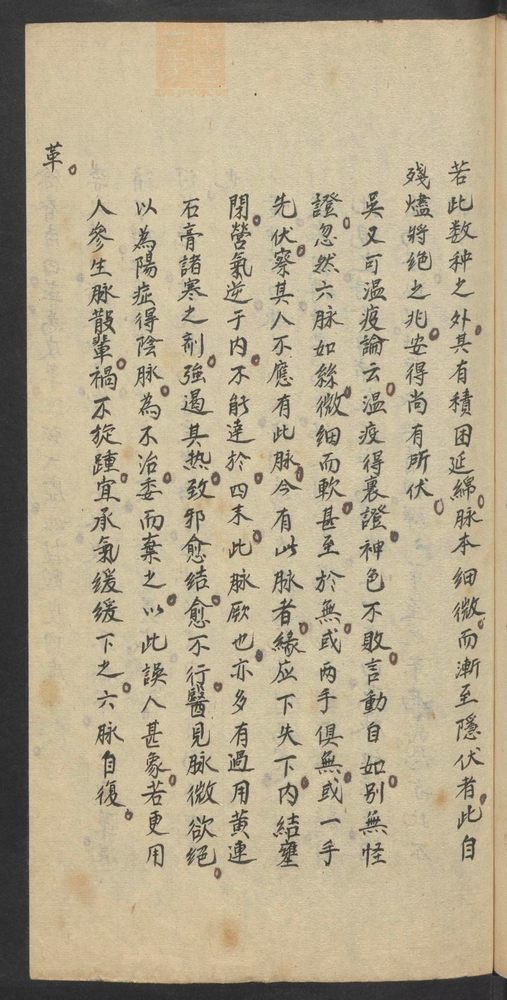 若此数种之外其有積困延綿脉本細微而漸至隱伏者此自
殘燼將絕之兆安得尚有所伏
吳又可温疫論云温疫得裏證神色不敗言動自如別無怪
證忽然六脉如絲微細而軟甚至於無或两手俱無或一手
先伏察其人不應有此脉今有此脉者緣应下失下内結壅
閉營氣逆于内不能達於四末此脉厥也亦多有過用黄連
石膏諸寒之剤強遏其热致邪愈結愈不行醫見脉微欲絕
以為陽症得陰脉為不治委而棄之以此誤人甚象若更用
人參生脉散輩禍不旋踵宜承氣缓缓下之六脉自復
革